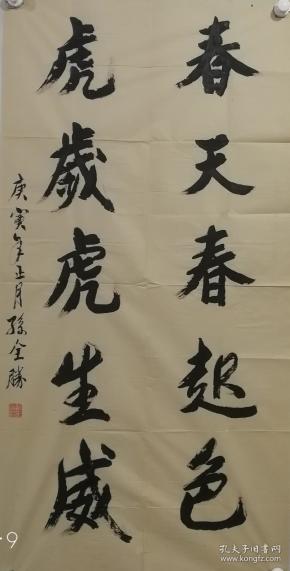 春天春起色
虎歲虎生威
庚寅年正月孫全勝
9
孔夫子旧书网